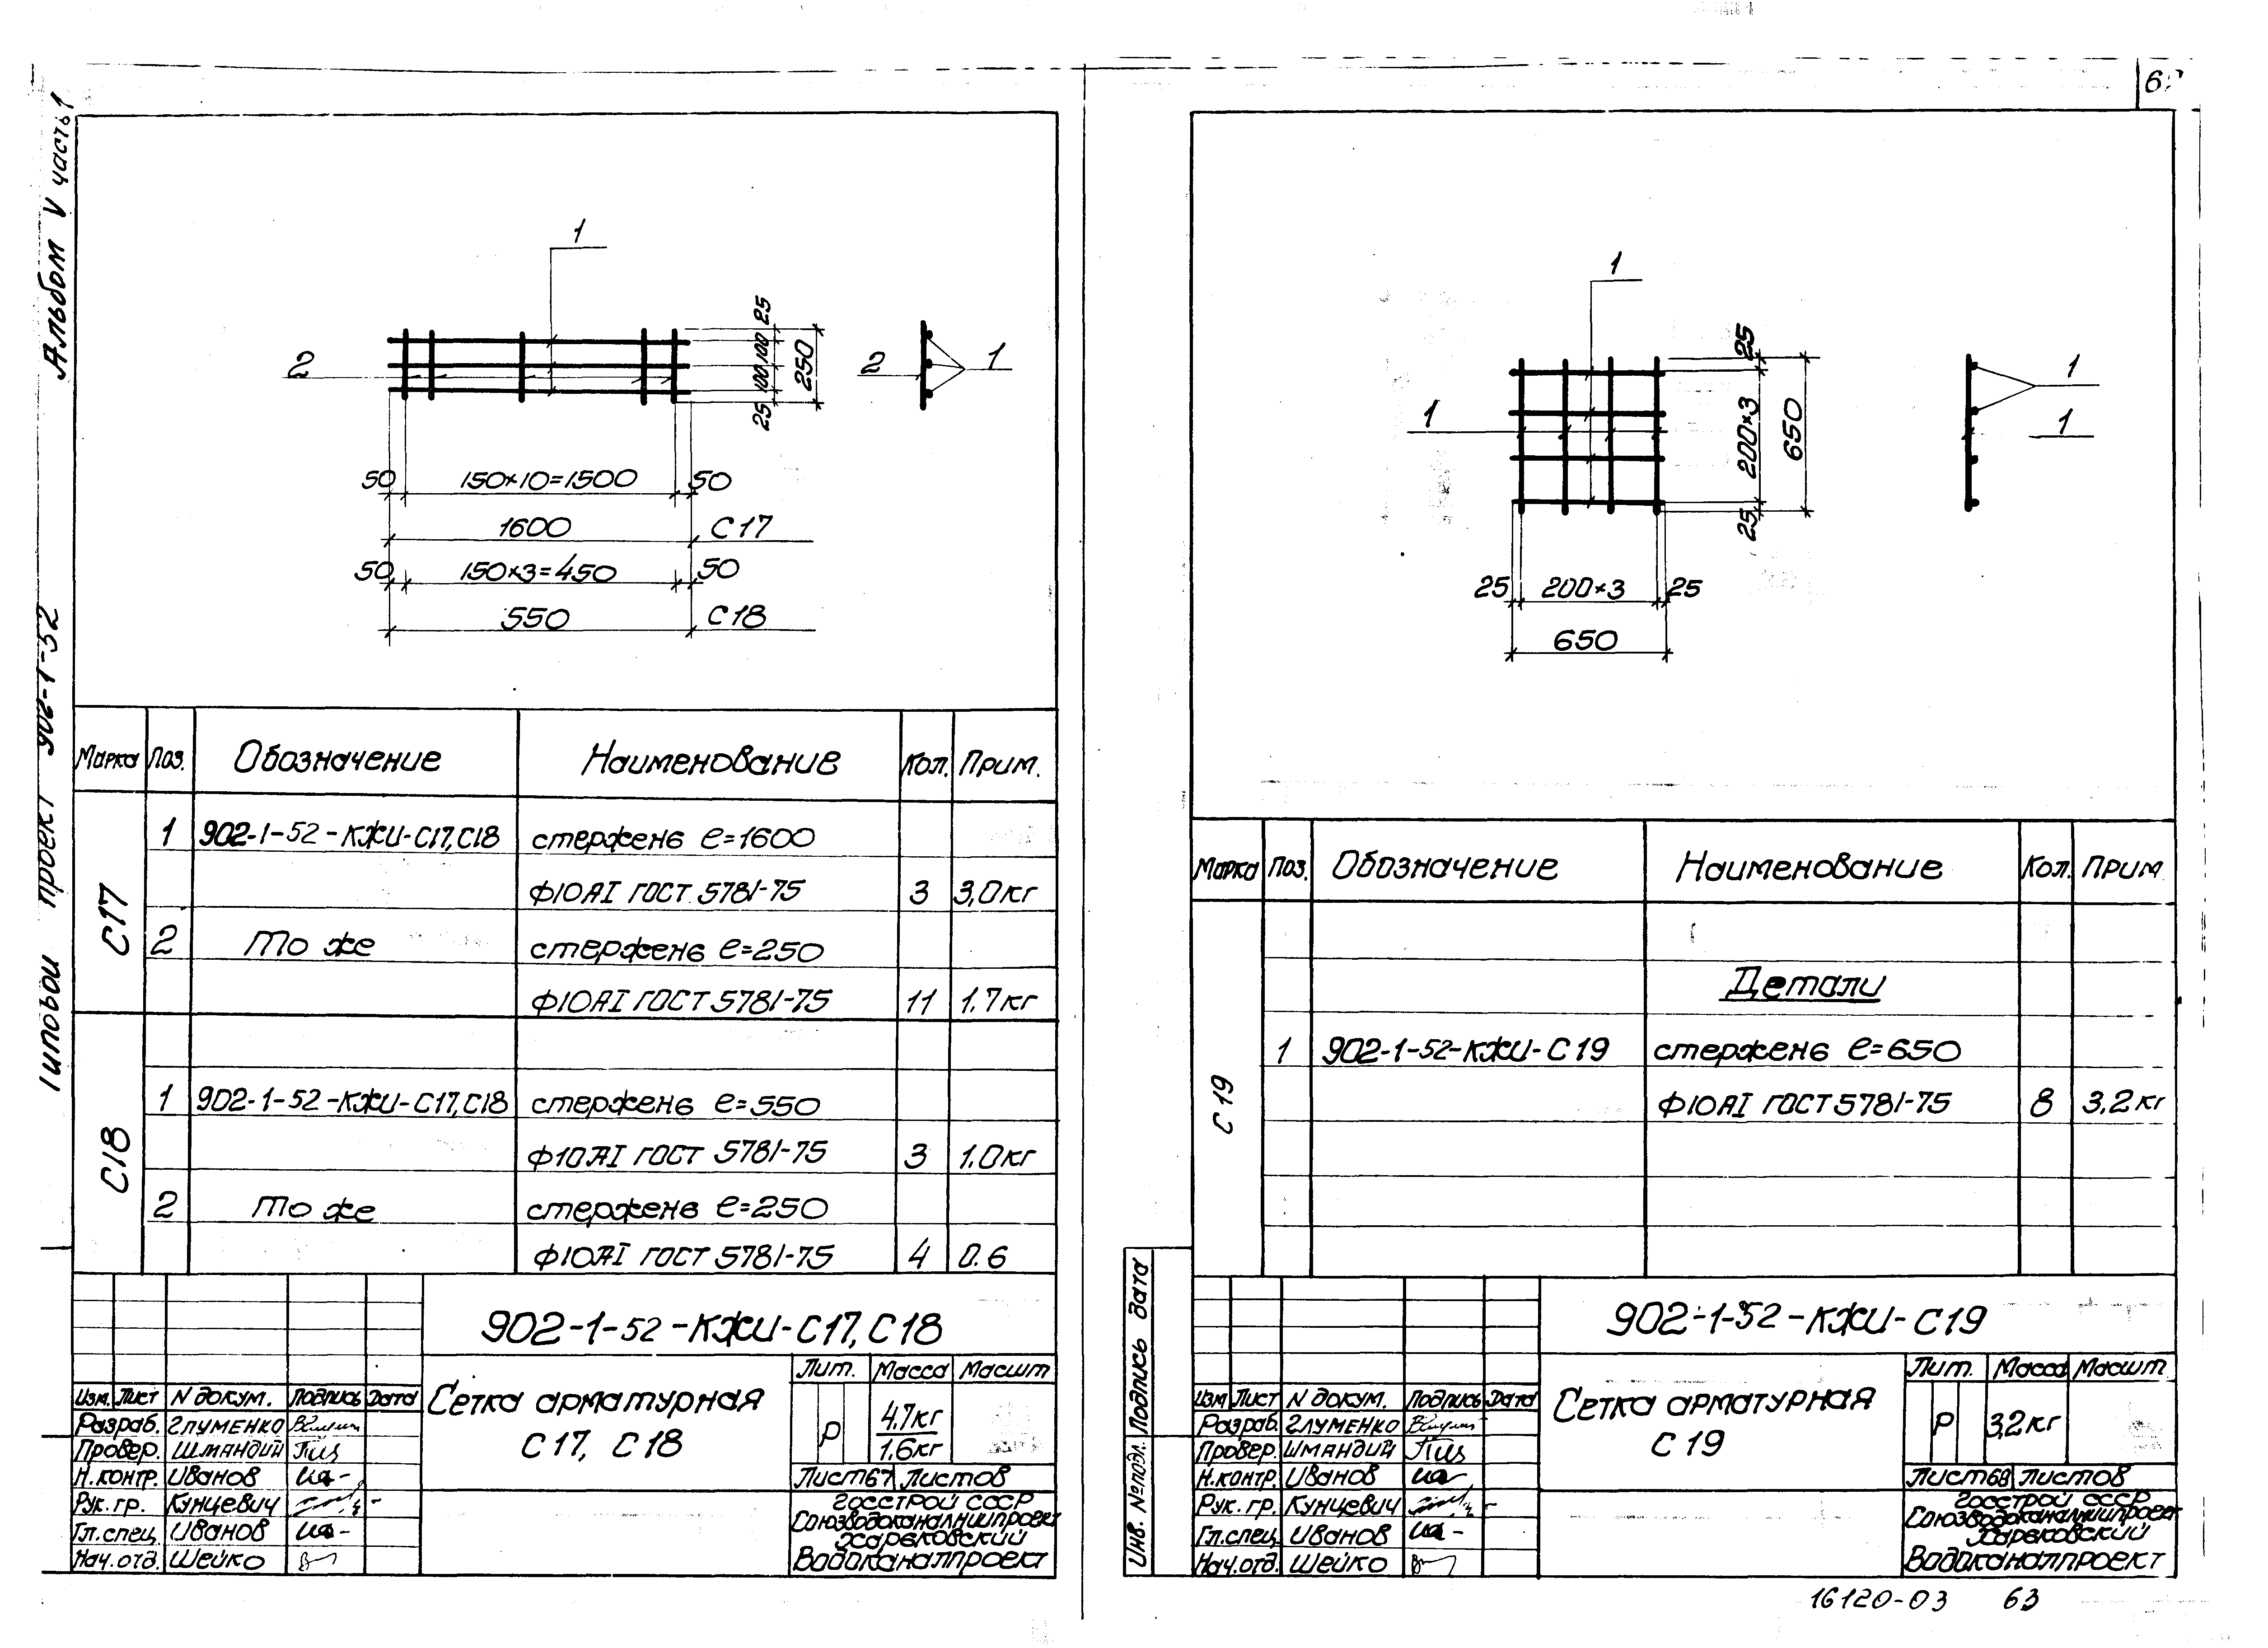 Альбом V часть 1
Типовой проект 902-1-52
1
2
25
100
100
25
250
2
1
50
150×10=1500
50
1600
С17
50
150×3=450
50
550
С18
Марка Поз. Обозначение Наименование Кол. Прим.
С17
1 902-1-52-КЖИ-С17,С18 стержень ℓ=1600
Ф10АI ГОСТ 5781-75 3 3,0кг
2 То же стержень ℓ=250
Ф10АI ГОСТ 5781-75 11 1.7кг
С18
1 902-1-52-КЖИ-С17,С18 стержень ℓ=550
Ф10АI ГОСТ 5781-75 3 1.0кг
2 То же стержень ℓ=250
Ф10АI ГОСТ 5781-75 4 0.6
902-1-52-КЖИ-С17,С18
Сетка арматурная
С17, С18
Лит. Масса Масшт
Р 4.7кг
1.6кг
Лист67 Листов
Госстрой СССР
Союзводоканалниипроект
Харьковский
Водоканалпроект
Изм. Лист N докум. Подпись Дата
Разраб. Глуменко
Провер. Шмандий
Н.контр. Иванов
Рук.гр. Кунцевич
Гл.спец. Иванов
Нач.отд. Шейко
1
1
25
200×3
25
650
1
1
25
200×3
25
650
Марка Поз. Обозначение Наименование Кол. Прим
С19
Детали
1 902-1-52-КЖИ-С19 стержень ℓ=650
Ф10АI ГОСТ 5781-75 8 3,2кг
902-1-52-КЖИ-С19
Сетка арматурная
С19
Лит. Масса Масшт
Р 3,2кг
Лист68 Листов
Госстрой СССР
Союзводоканалниипроект
Харьковский
Водоканалпроект
Изм Лист N докум. Подпись Дата
Разраб. Глуменко
Провер. Шмандий
Н.контр. Иванов
Рук.гр. Кунцевич
Гл.спец. Иванов
Нач.отд. Шейко
Инв. №подл. Подпись Дата
16120-03 63